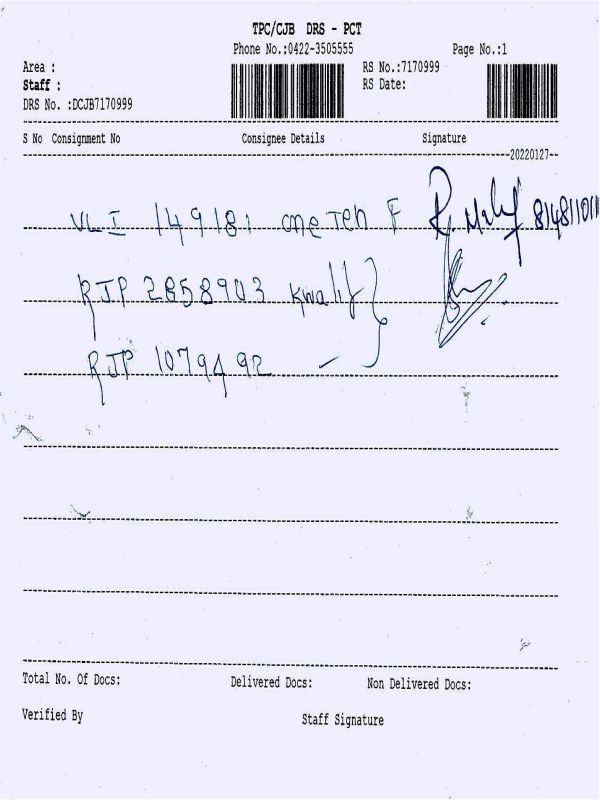 TPC/CJB DRS - PCT
Phone No.:0422-3505555 Page No.:1
Area : RS No.:7170999
Staff : RS Date:
DRS No. :DCJB7170999
S No Consignment No Consignee Details Signature
20220127
VLI 149181 F
RJP 2858903
RJP 1079492
Total No. Of Docs: Delivered Docs: Non Delivered Docs:
Verified By Staff Signature